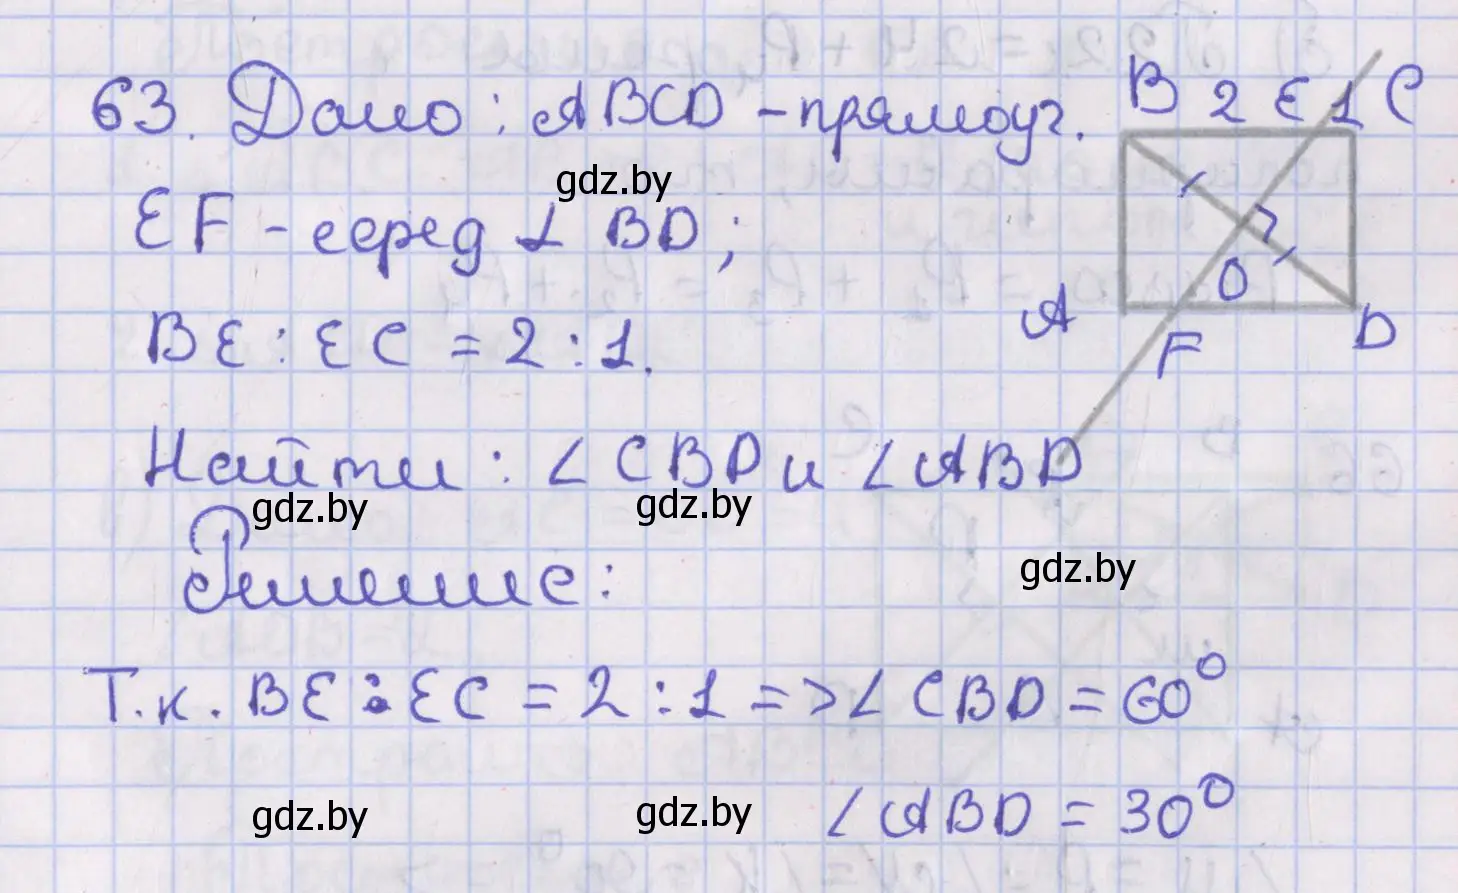 63. Дано: ABCD - прямоуг.
EF - серед ⊥ BD;
BE : EC = 2 : 1.
Найти: ∠CBD и ∠ABD
Решение:
Т.к. BE : EC = 2 : 1 => ∠CBD = 60°
∠ABD = 30°
B 2 E 1 C
O
A
F
D
gdz.by
gdz.by
gdz.by
gdz.by
gdz.by
gdz.by